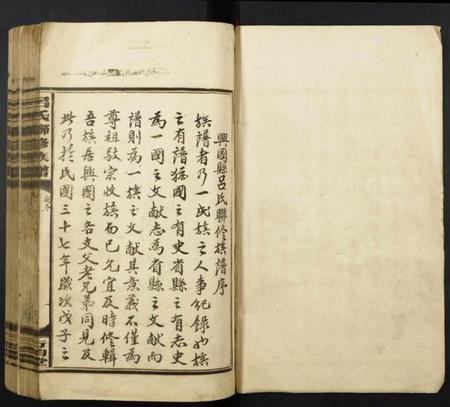 興國縣呂氏聯修族譜序
族譜者乃一民族之人事紀錄也族
之有譜猶國之有史省縣之有志史
為一國之文献志為省縣之文献而
譜則為一族之文献其意義不僅為
尊祖敬宗收族而已允宜及時修輯
吾族居興國之各文父老兄弟同見及
此乃於民國三十七年歲次戊子之
呂氏聯修族譜